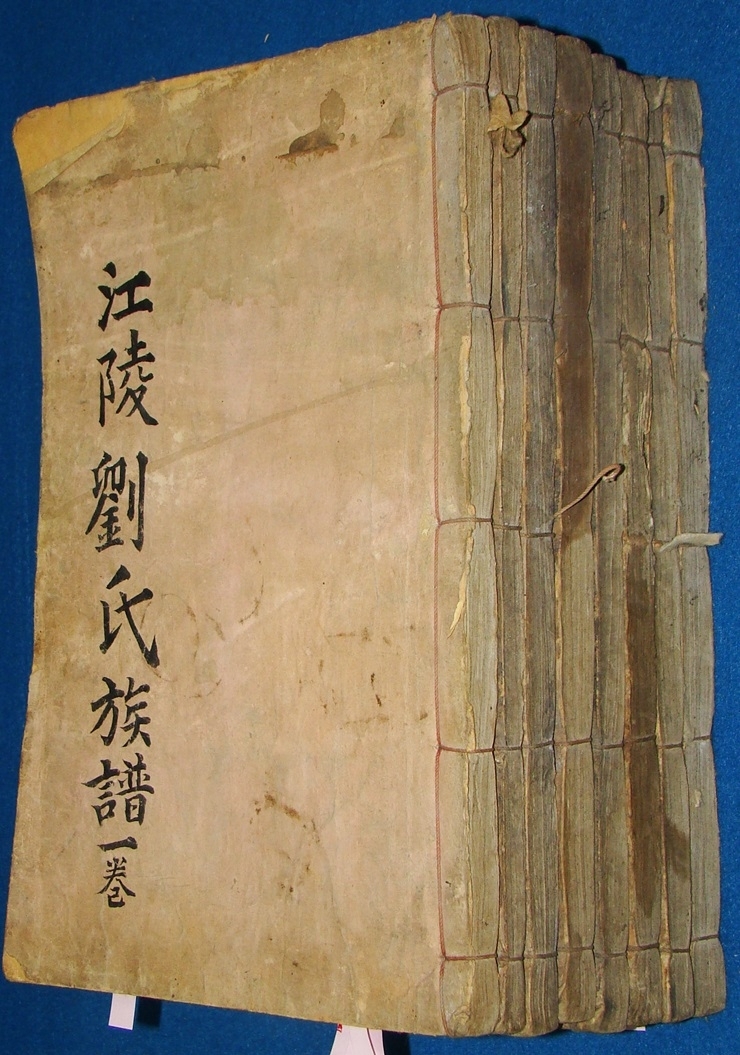 江陵劉氏族譜一卷